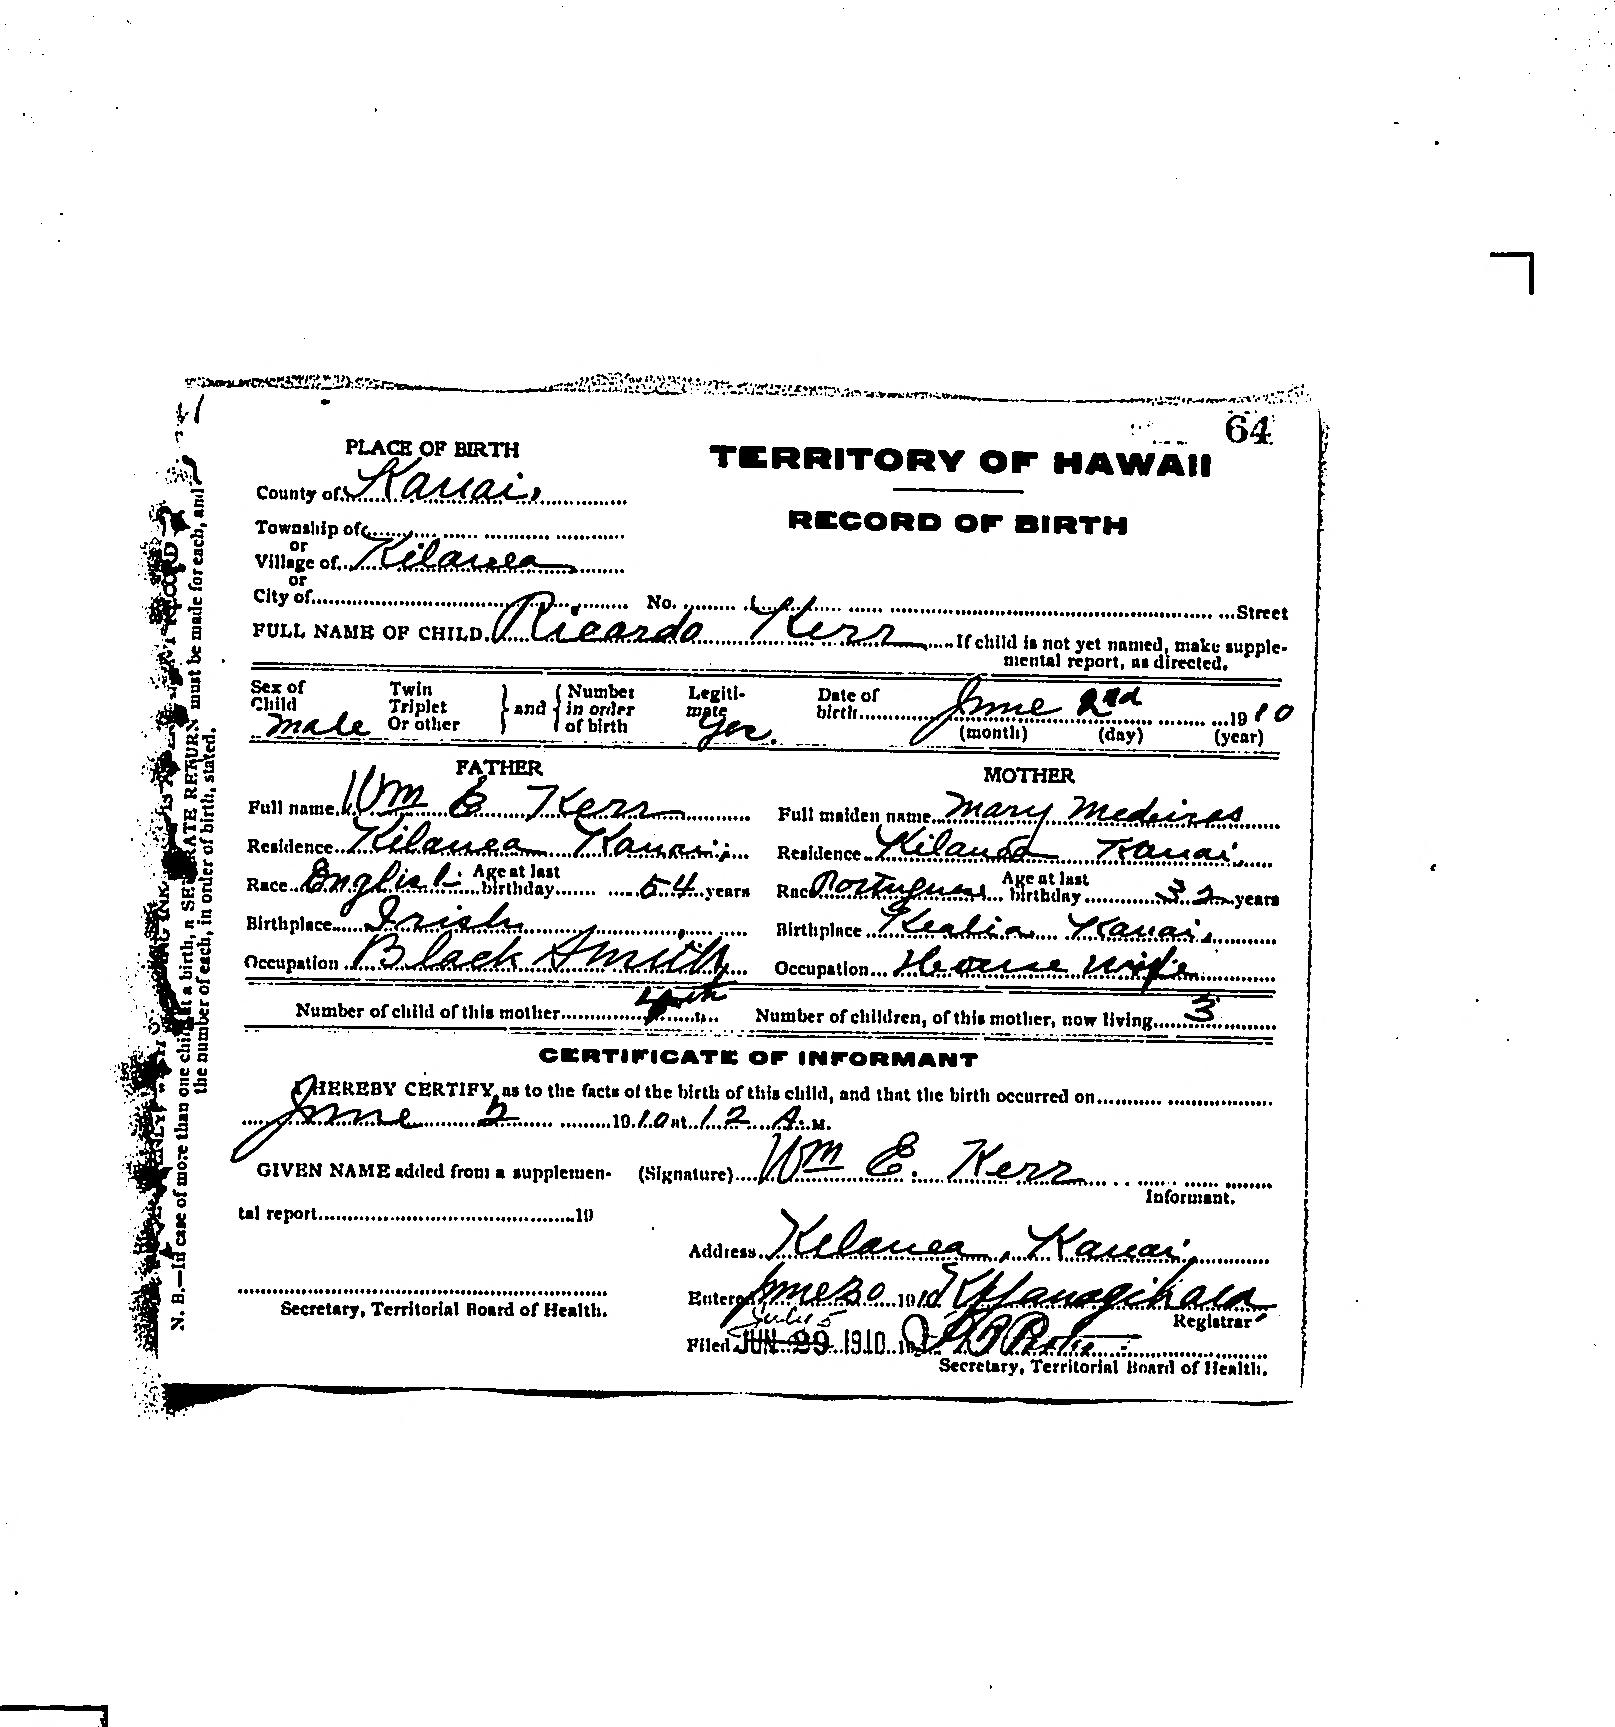 64
PLACE OF BIRTH
TERRITORY OF HAWAII
County of Kauai,
RECORD OF BIRTH
Township of
or
Village of Kilauea
or
City of No. Street
FULL NAME OF CHILD Ricardo Kerr If child is not yet named, make supple-
mental report, as directed.
Sex of Child male Twin Triplet Or other } and { Number in order of birth Legiti- mate Yes. Date of birth June 2nd 1910
(month) (day) (year)
FATHER
MOTHER
Full name Wm E Kerr Full maiden name Mary Medeiros
Residence Kilauea Kauai, Residence Kilauea Kauai,
Race English Age at last birthday 54 years Race Portuguese Age at last birthday 32 years
Birthplace Irish Birthplace Kealia Kauai,
Occupation Black Smith Occupation House wife
Number of child of this mother 4th Number of children, of this mother, now living 3
CERTIFICATE OF INFORMANT
I HEREBY CERTIFY, as to the facts of the birth of this child, and that the birth occurred on
June 2 1910 at 12 A. M.
GIVEN NAME added from a supplemen- (Signature) Wm E. Kerr
Informant.
tal report 19
Address Kilauea, Kauai,
Entered June 30 1910
Secretary, Territorial Board of Health. Registrar
July 5
Filed JUN 29 1910
Secretary, Territorial Board of Health.
N. B.—In case of more than one child at a birth, a SEPARATE RETURN must be made for each, and
the number of each, in order of birth, stated.